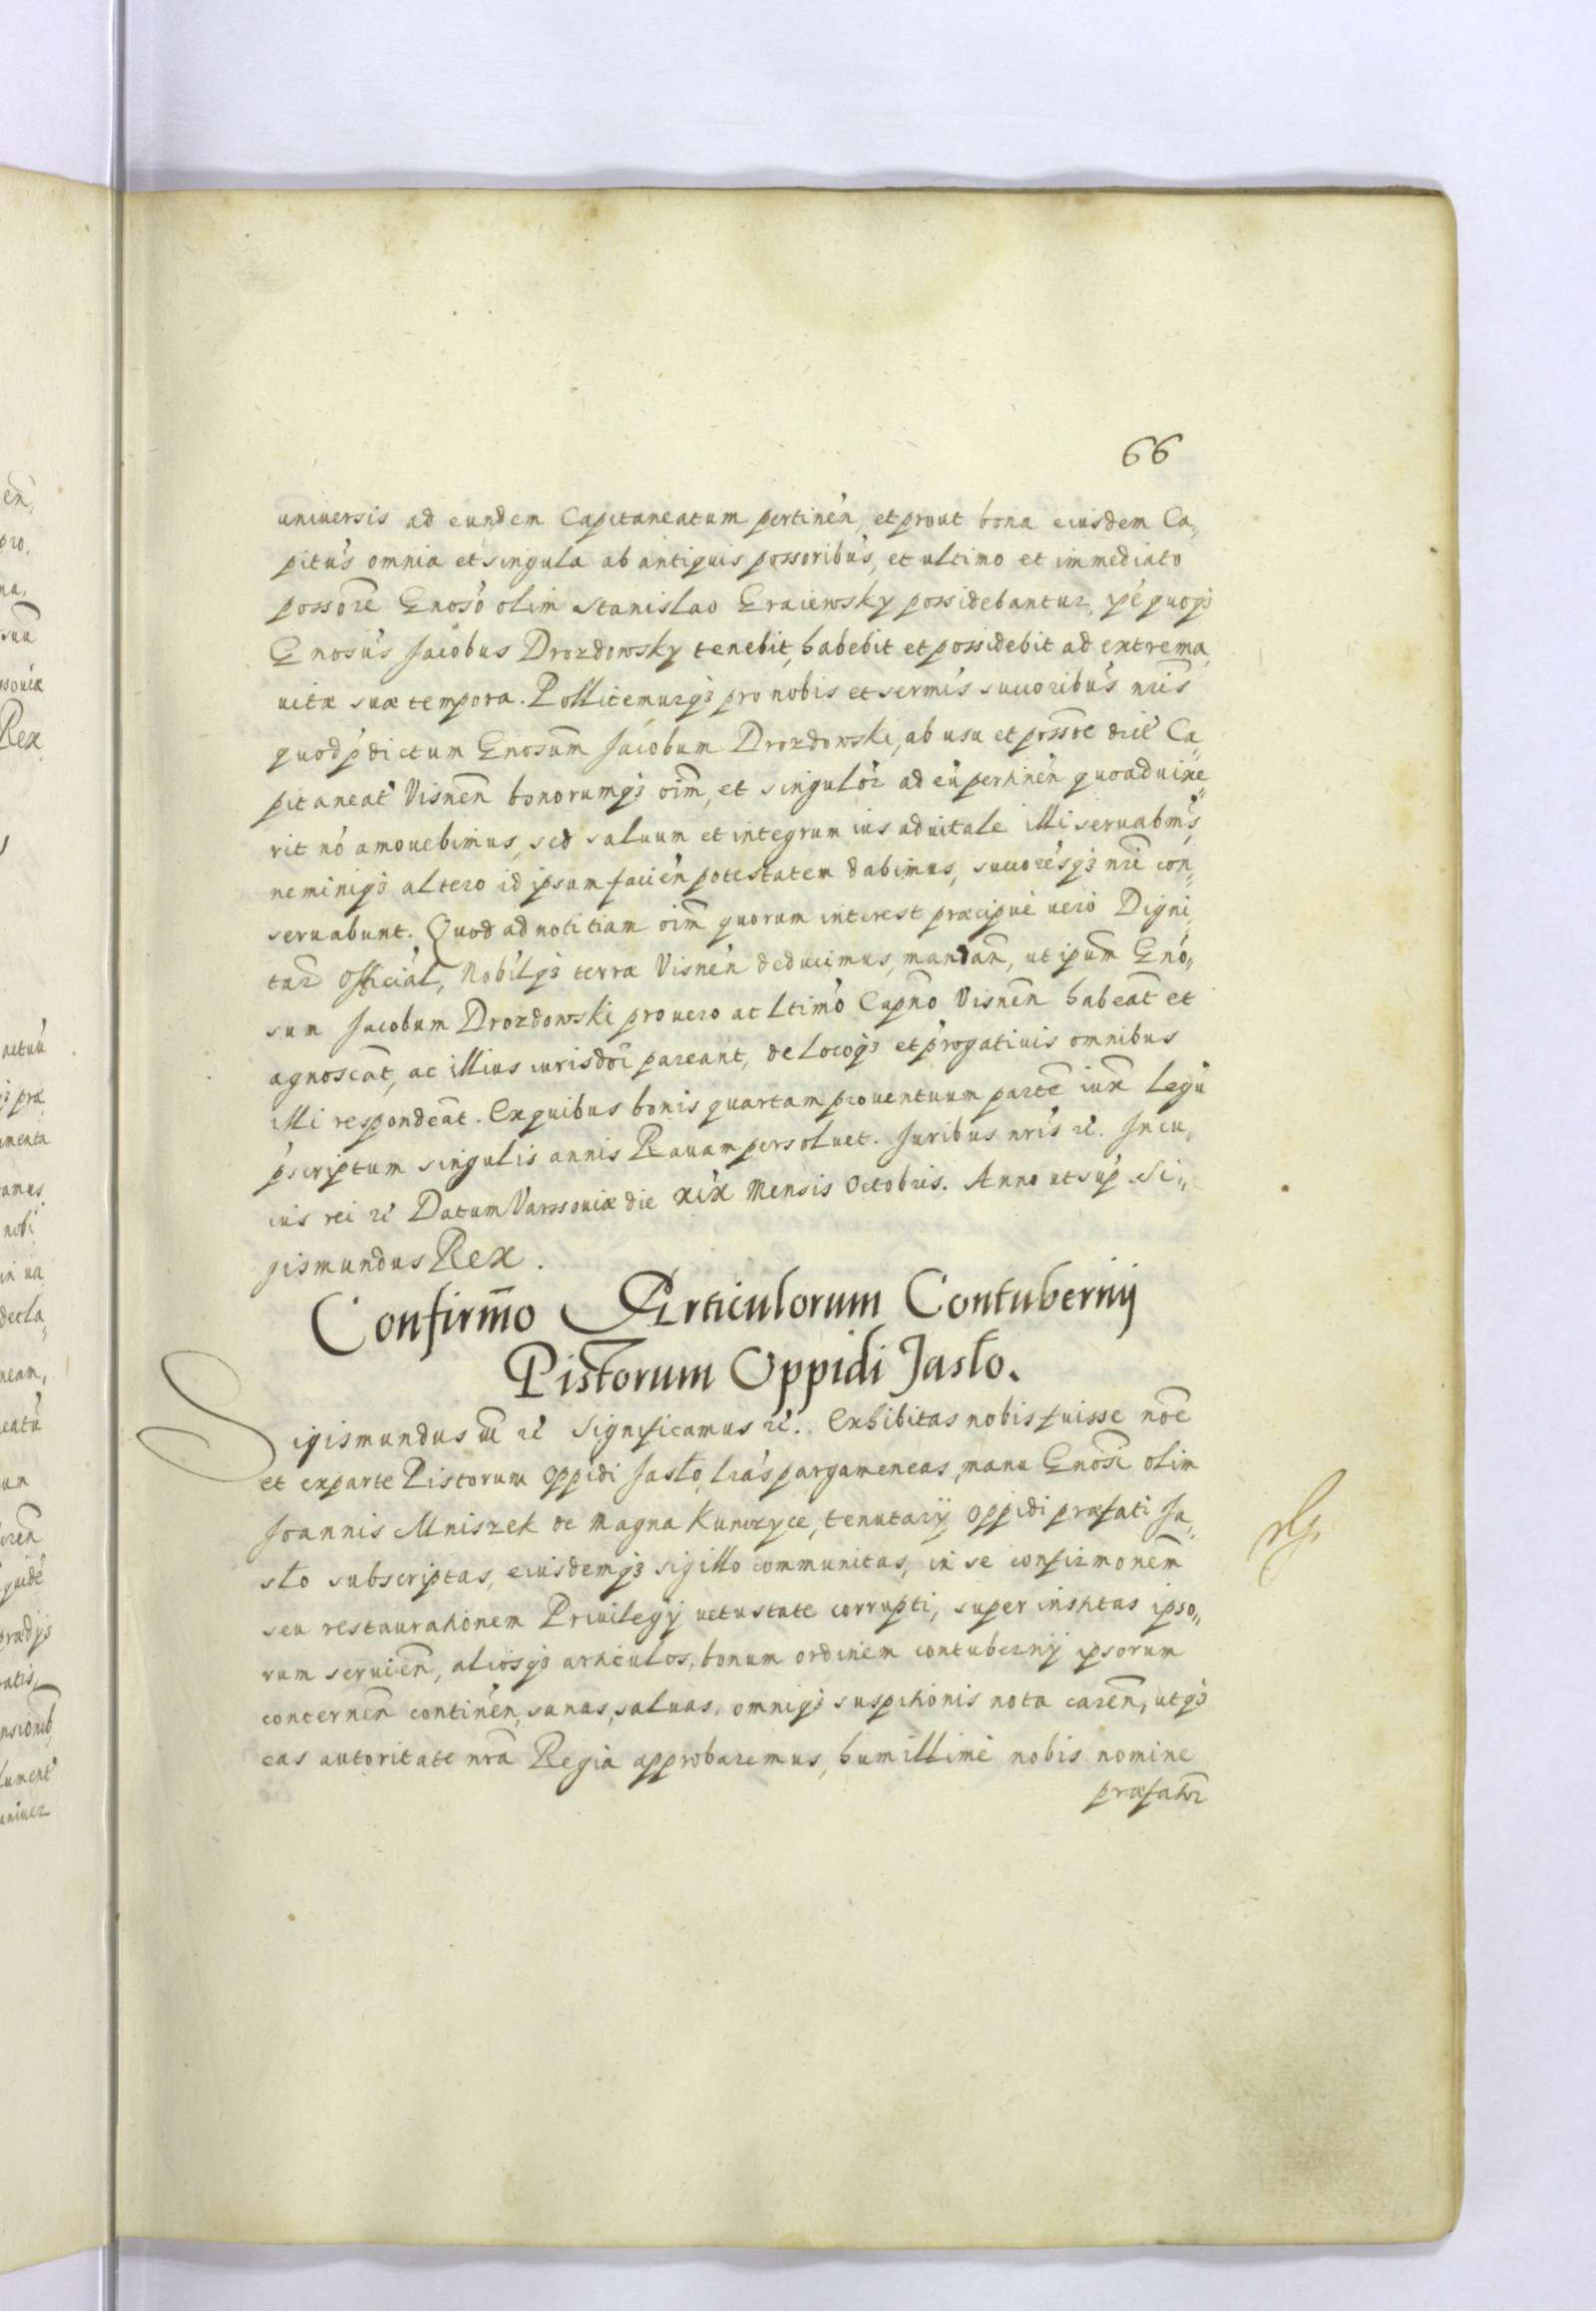 66
universis ad eundem Capitaneatum pertineñ, et prout bona eiusdem Ca„
pitus omnia et singula ab antiquis possoribus, et ultimo et immediato
possore Gnoso olim Stanislao Graiewsky possidebantur, ipe quoqз
Gnosus Jacobus Drozdowsky tenebit, habebit et possidebit ad extrema
uitæ suæ tempora. Pollicemurqз pro nobis et sermis succoribus nris
quod pdictum Gnosum Jacobum Drozdowski, ab usu et possoe dict Ca„
pitaneat Visneñ bonorumqз oim, et singulor ad eu pertineñ quoad uixe„
rit nō amouebimus, sed saluum et integrum ius aduitale illi seruabms,
neminiqз altero id ipsum facieñ potestatem dabimus, succoresqз nri con„
seruabunt. Quod ad notitiam oim quorum interest præcipuè uero Digni„
tar Official, Nobilqз terræ Visneñ deducimus, mandañ, ut ipum Gno„
sum Jacobum Drozdowski pro uero ac ltimo Capno Visneñ habeat et
agnoscat, ac illius iurisdoi pareant, de locoqз et progatiuis omnibus
illi respondeat. Ex quibus bonis quartam prouentuum parte iux legu
pscriptum singulis annis Rauam persoluet. Juribus nris rc. In cu„
ius rei rc Datum Varssouiæ die XIX Mensis Octobris. Anno ut sup. Si„
gismundus Rex.
Confirmo Articulorum Contubernij
Pistorum Oppidi Jasło.
Sigismundus III rc Significamus rc. Exhibitas nobis fuisse noe
et ex parte Pistorum Oppidi Jasło, lras pargameneas, manu Gnosi olim
Joannis Mniszek de Magna Kunczyce, tenutarij Oppidi præfati Ja„
sło subscriptas, eiusdemqз sigillo communitas, in se confirmonem
seu restaurationem Priuilegij uetustate corrupti, super inshtas ipso„
rum seruieñ, aliosqз articulos, bonum ordinem contubernij ipsorum
concerneñ contineñ, sanas, saluas, omniqз suspitionis nota careñ, utqз
eas autoritate nra Regia approbaremus, humillimè nobis nomine
præfator